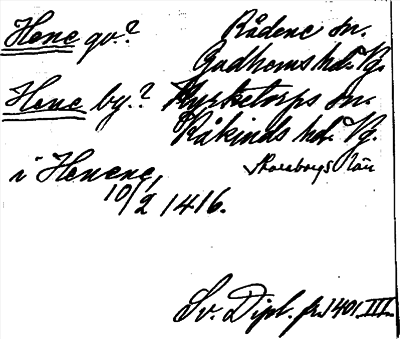 Hene qv.? Rådene sn.
Gudhems hd. Vg.
Hene by.? Kyrketorps sn.
Kåkinds hd. Vg.
Skaraborgs län
i Henene,
10/2 1416.
Sv. Dipl. fr. 1401 III.